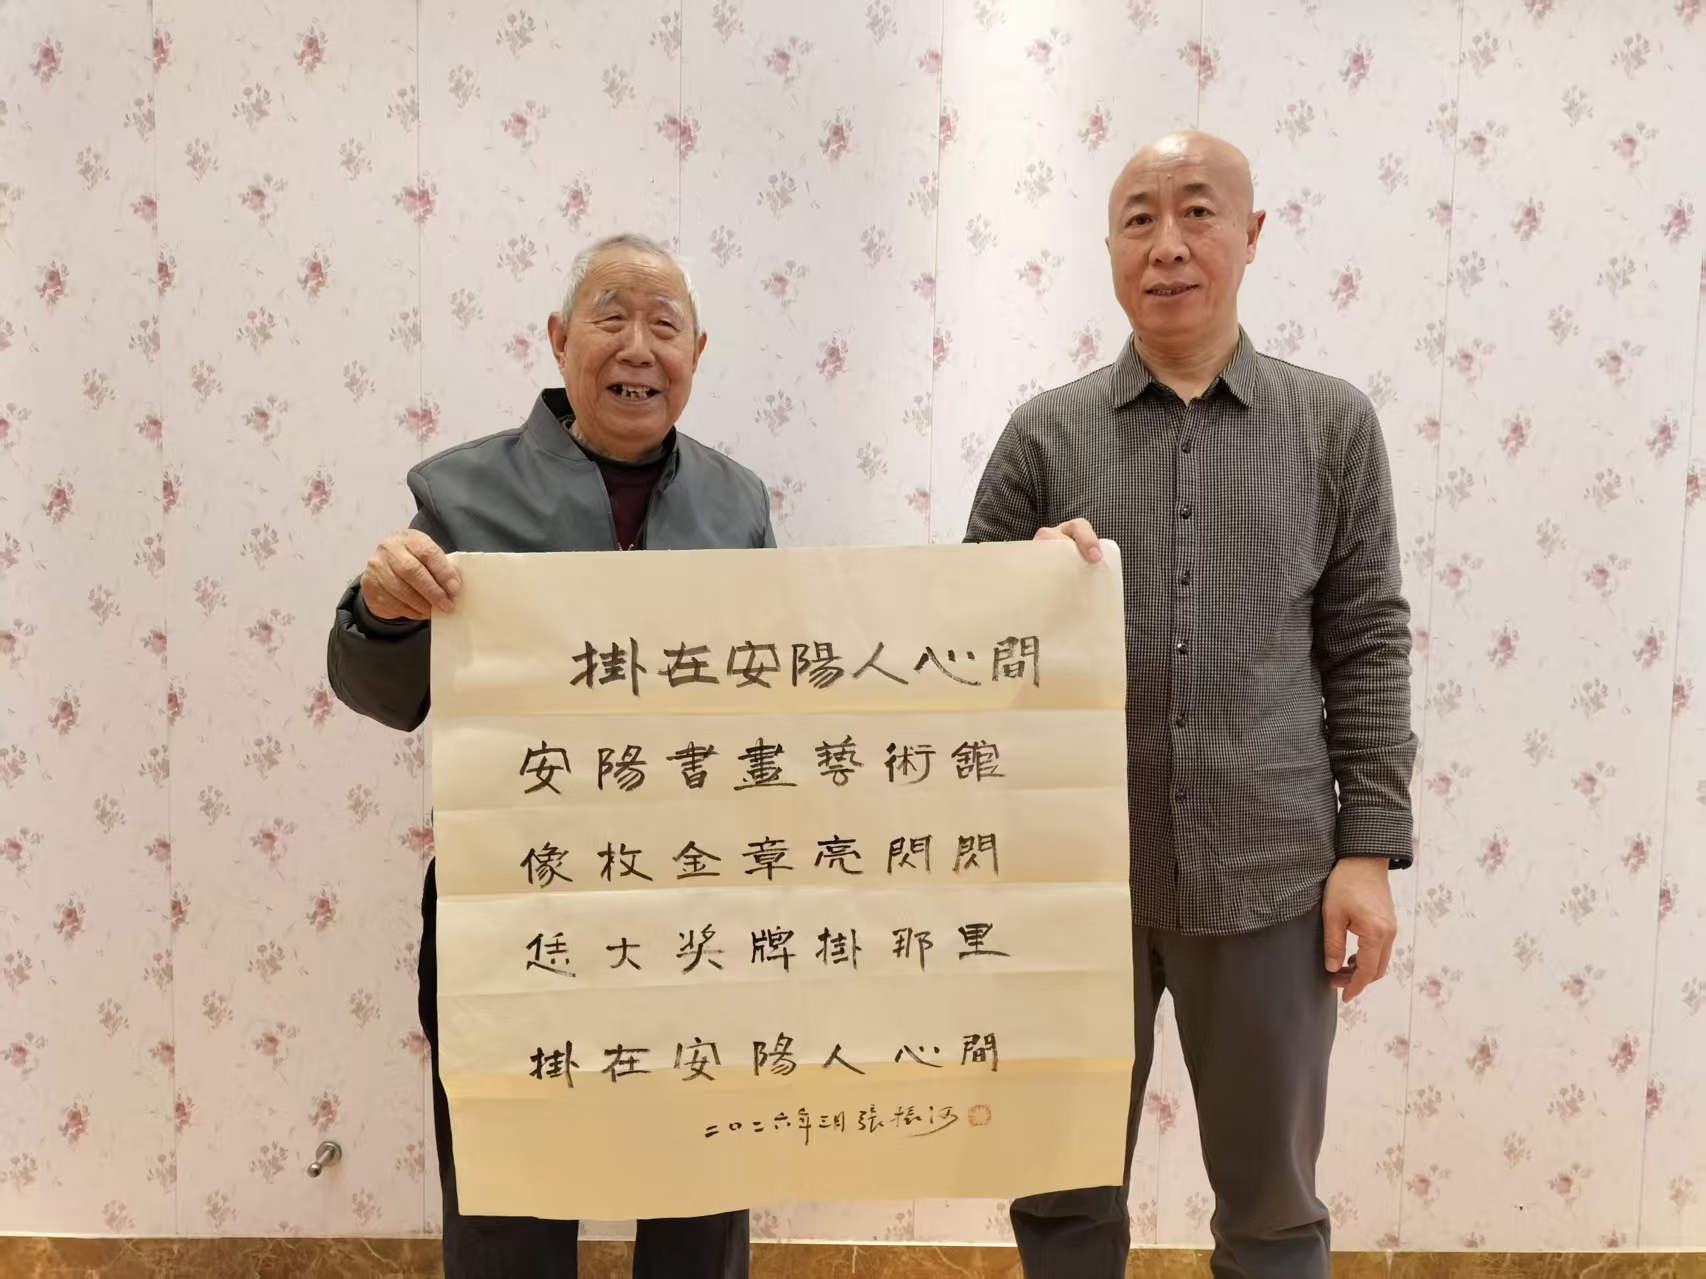 掛在安陽人心間
安陽書畫藝術館
像枚金章亮閃閃
恁大奖牌掛那里
掛在安陽人心間
二〇二六年三月張振河